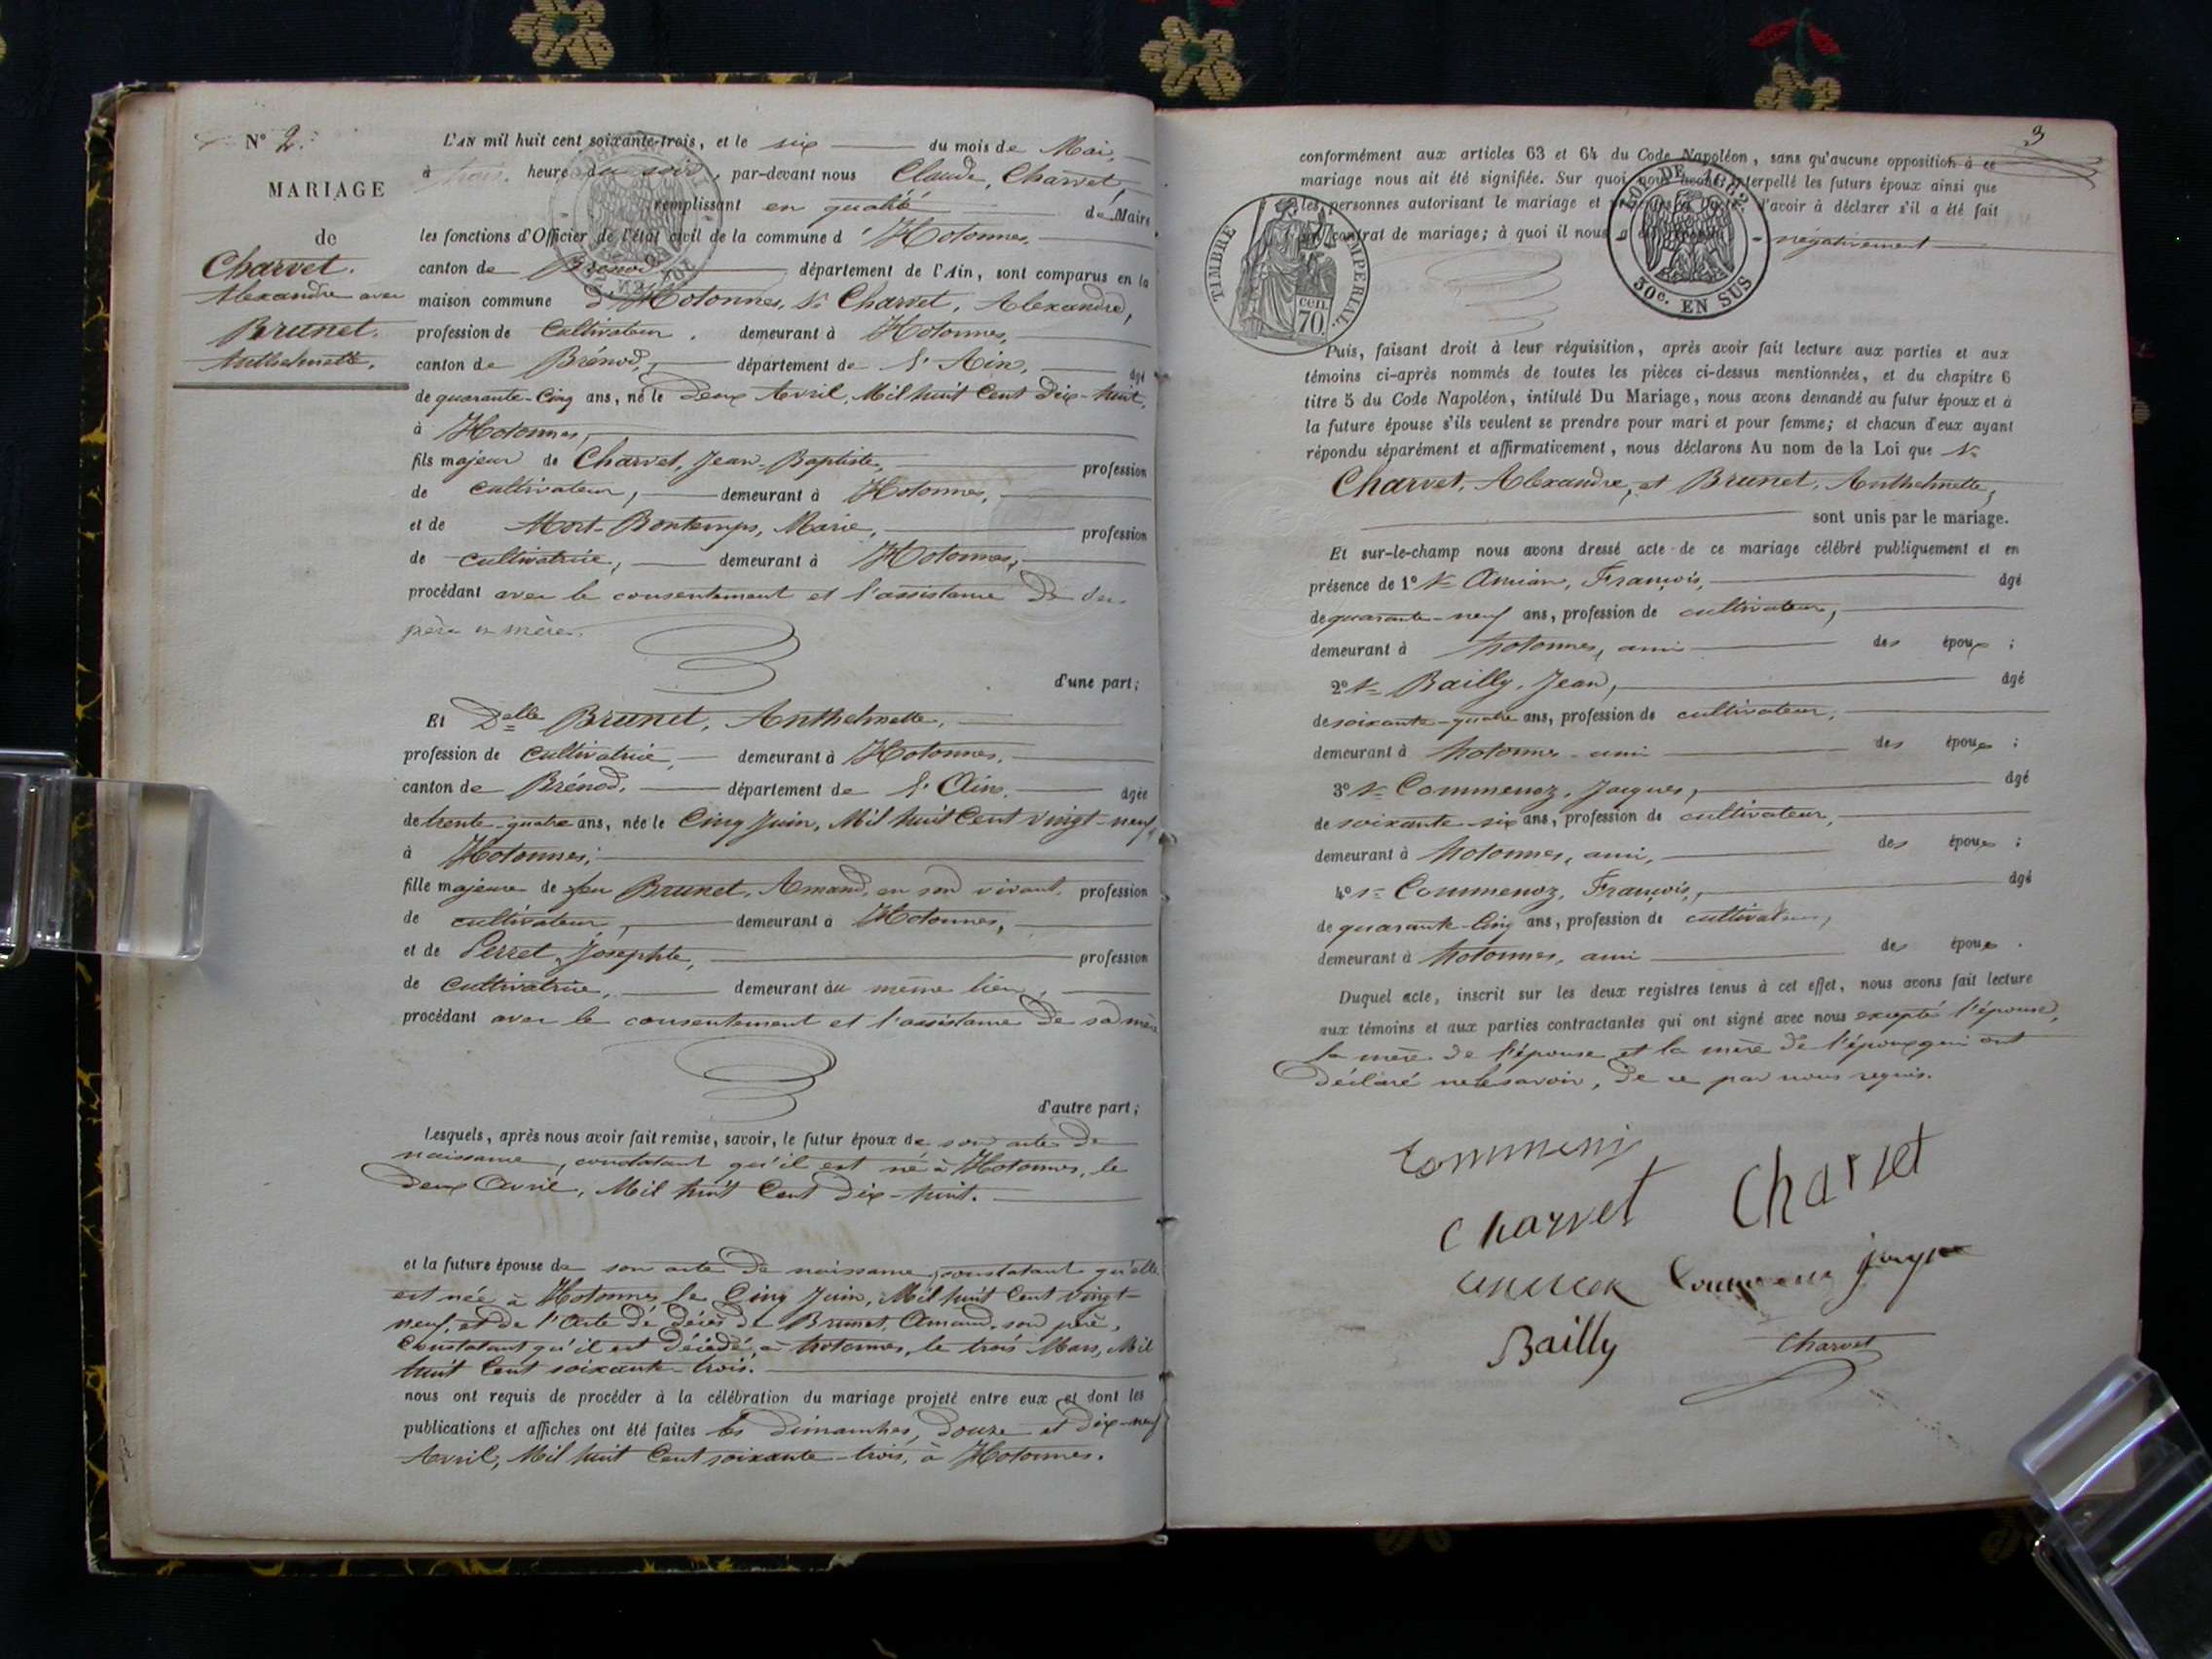 N° 2.
MARIAGE
de
Charvet.
Alexandre avec
Brunet.
Anthelmette.
L'AN mil huit cent soixante-trois, et le six du mois de Mai,
à trois heure du soir, par-devant nous Claude, Charvet,
remplissant en qualité de Maire
les fonctions d'Officier de l'état civil de la commune d'Hotonnes,
canton de Brénod département de l'Ain, sont comparus en la
maison commune d'Hotonnes, Sr Charvet, Alexandre,
profession de Cultivateur, demeurant à Hotonnes,
canton de Brénod, département de l'Ain, âgé
de quarante-Cinq ans, né le Deux Avril, Mil huit Cent Dix-huit,
à Hotonnes,
fils majeur de Charvet, Jean-Baptiste, profession
de cultivateur, demeurant à Hotonnes,
et de Mort-Bontemps, Marie, profession
de cultivatrice, demeurant à Hotonnes,
procédant avec le consentement et l'assistance de
père et mère.
d'une part;
Et Delle Brunet, Anthelmette,
profession de Cultivatrice, demeurant à Hotonnes,
canton de Brénod, département de l'Ain, âgée
de trente-quatre ans, née le Cinq Juin, Mil huit Cent vingt-neuf,
à Hotonnes;
fille majeure de feu Brunet, Amand, en son vivant, profession
de cultivateur, demeurant à Hotonnes,
et de Perret, Josephte, profession
de Cultivatrice, demeurant au même lieu,
procédant avec le consentement et l'assistance de sa mère
d'autre part;
Lesquels, après nous avoir fait remise, savoir, le futur époux de son acte de
naissance, constatant qu'il est né à Hotonnes, le
deux Avril, Mil huit Cent dix-huit.
et la future épouse de son acte de naissance, constatant qu'elle
est née à Hotonnes le Cinq Juin, Mil huit Cent vingt-
neuf, et de l'acte de décès de Brunet, Amand, son père,
Constatant qu'il est décédé à hotonnes, le trois Mars, Mil
huit Cent soixante-trois.
nous ont requis de procéder à la célébration du mariage projeté entre eux et dont les
publications et affiches ont été faites les dimanches, douze et dix-neuf
Avril, Mil huit Cent soixante-trois, à Hotonnes.
3
conformément aux articles 63 et 64 du Code Napoléon, sans qu'aucune opposition à ce
mariage nous ait été signifiée. Sur quoi nous avons interpellé les futurs époux ainsi que
les personnes autorisant le mariage et d'avoir à déclarer s'il a été fait
un contrat de mariage; à quoi il nous a négativement
TIMBRE IMPÉRIAL.
70 cen.
LOI DE 1862
30c. EN SUS
Puis, faisant droit à leur réquisition, après avoir fait lecture aux parties et aux
témoins ci-après nommés de toutes les pièces ci-dessus mentionnées, et du chapitre 6
titre 5 du Code Napoléon, intitulé Du Mariage, nous avons demandé au futur époux et à
la future épouse s'ils veulent se prendre pour mari et pour femme; et chacun d'eux ayant
répondu séparément et affirmativement, nous déclarons Au nom de la Loi que Sr
Charvet, Alexandre, et Brunet, Anthelmette,
sont unis par le mariage.
Et sur-le-champ nous avons dressé acte de ce mariage célébré publiquement et en
présence de 1° Sr François, âgé
de quarante-neuf ans, profession de cultivateur,
demeurant à hotonnes, ami des époux;
2° Sr Bailly, Jean, âgé
de soixante-quatre ans, profession de cultivateur,
demeurant à hotonnes ami des époux;
3° Sr Commenoz, Jacques, âgé
de soixante-six ans, profession de cultivateur,
demeurant à hotonnes, ami, des époux;
4° Sr Commenoz, François, âgé
de quarante-Cinq ans, profession de cultivateur,
demeurant à hotonnes, ami des époux.
Duquel acte, inscrit sur les deux registres tenus à cet effet, nous avons fait lecture
aux témoins et aux parties contractantes qui ont signé avec nous excepté l'épouse,
la mère de l'épouse et la mère de l'époux qui ont
déclaré ne le savoir, de ce par nous requis.
Charvet Charvet
Bailly Charvet